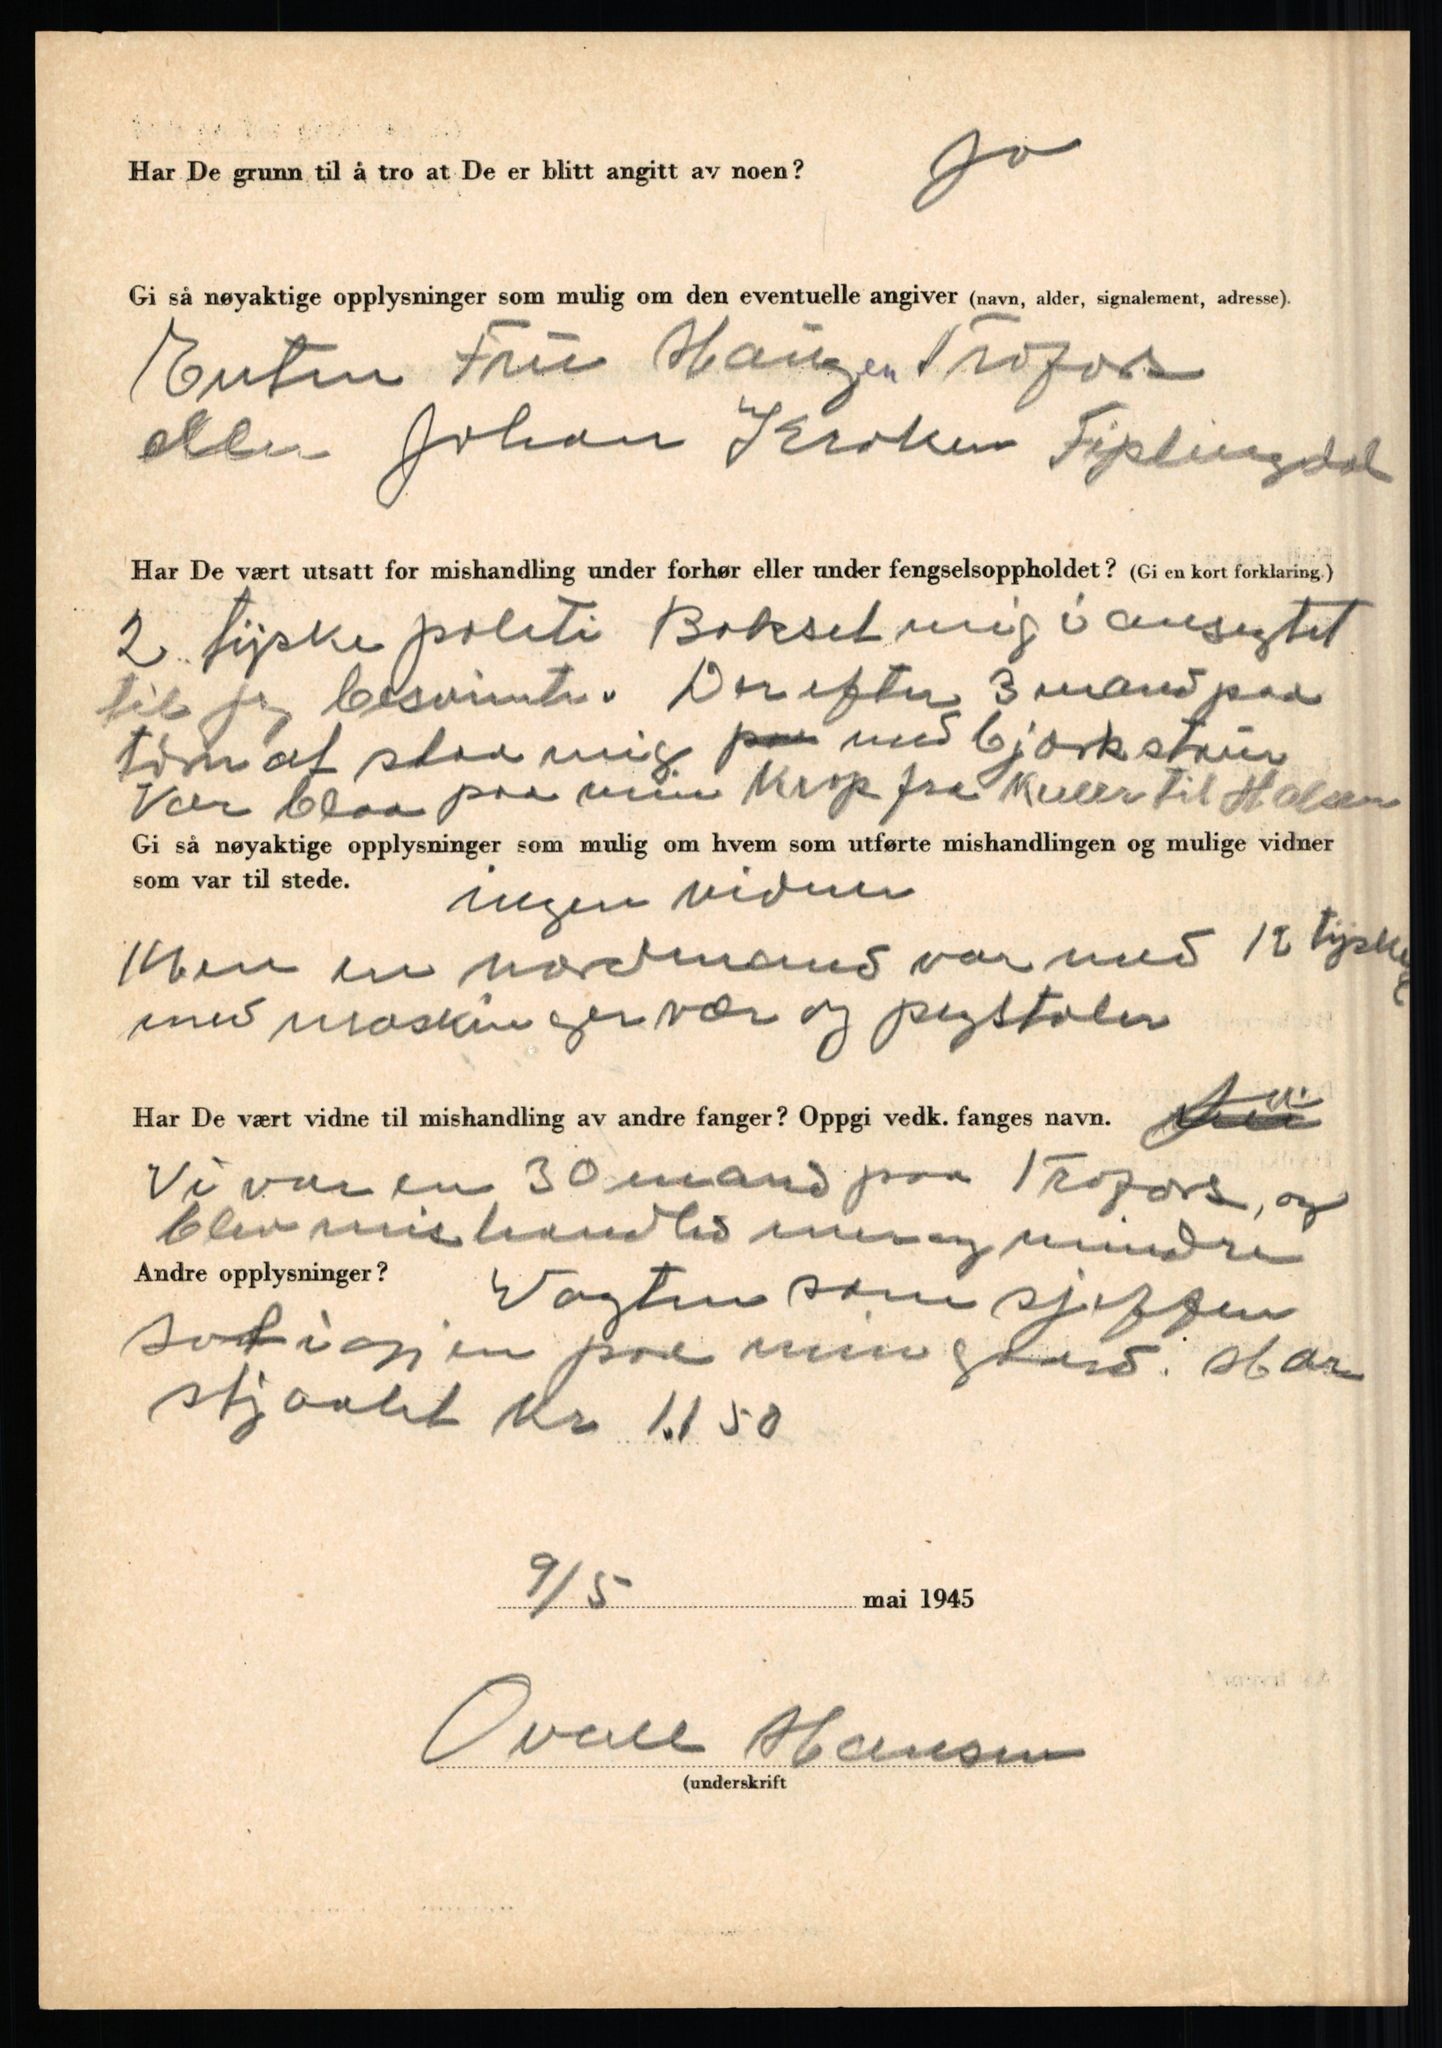 Har De grunn til å tro at De er blitt angitt av noen? Jo
Gi så nøyaktige opplysninger som mulig om den eventuelle angiver (navn, alder, signalement, adresse).
Enten Frü Haugen Trofors
eller Johan Kroken Fiplingdal
Har De vært utsatt for mishandling under forhør eller under fengselsoppholdet? (Gi en kort forklaring.)
2 tyske politi Bokset mig i ansegtet
til jeg besvimte. Derefter 3 mand paa
törn at slaa mig paa med bjørkstaur
Var blaa paa min Krop fra Kneer til Halsen
Gi så nøyaktige opplysninger som mulig om hvem som utførte mishandlingen og mulige vidner
som var til stede.
ingen vidner
Men en nordmand var med 12 tyskere
med maskingervær og pegstoler
Har De vært vidne til mishandling av andre fanger? Oppgi vedk. fanges navn.
Vi var en 30 mand paa Trofors, og
blev mishandlet mer og mindre
Andre opplysninger? Vagten som sjeffen
sat igjen paa min gaard. Har
stjaalet Kr 1.150
9/5 mai 1945
Ovall Hansen
(underskrift